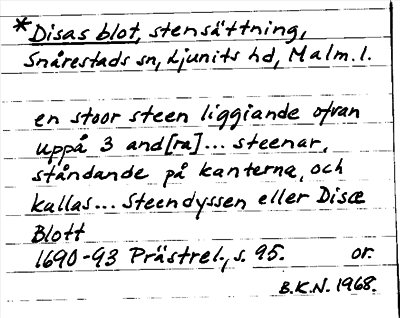 *Disas blot, stensättning,
Snårestads sn, Ljunits hd, Malm. l.
en stoor steen liggiande ofvan
uppå 3 and[ra]... steenar,
ståndande på kanterna, och
kallas... Steendyssen eller Disæ
Blott
1690-93 Prästrel., s. 95. or.
B.K.N. 1968.